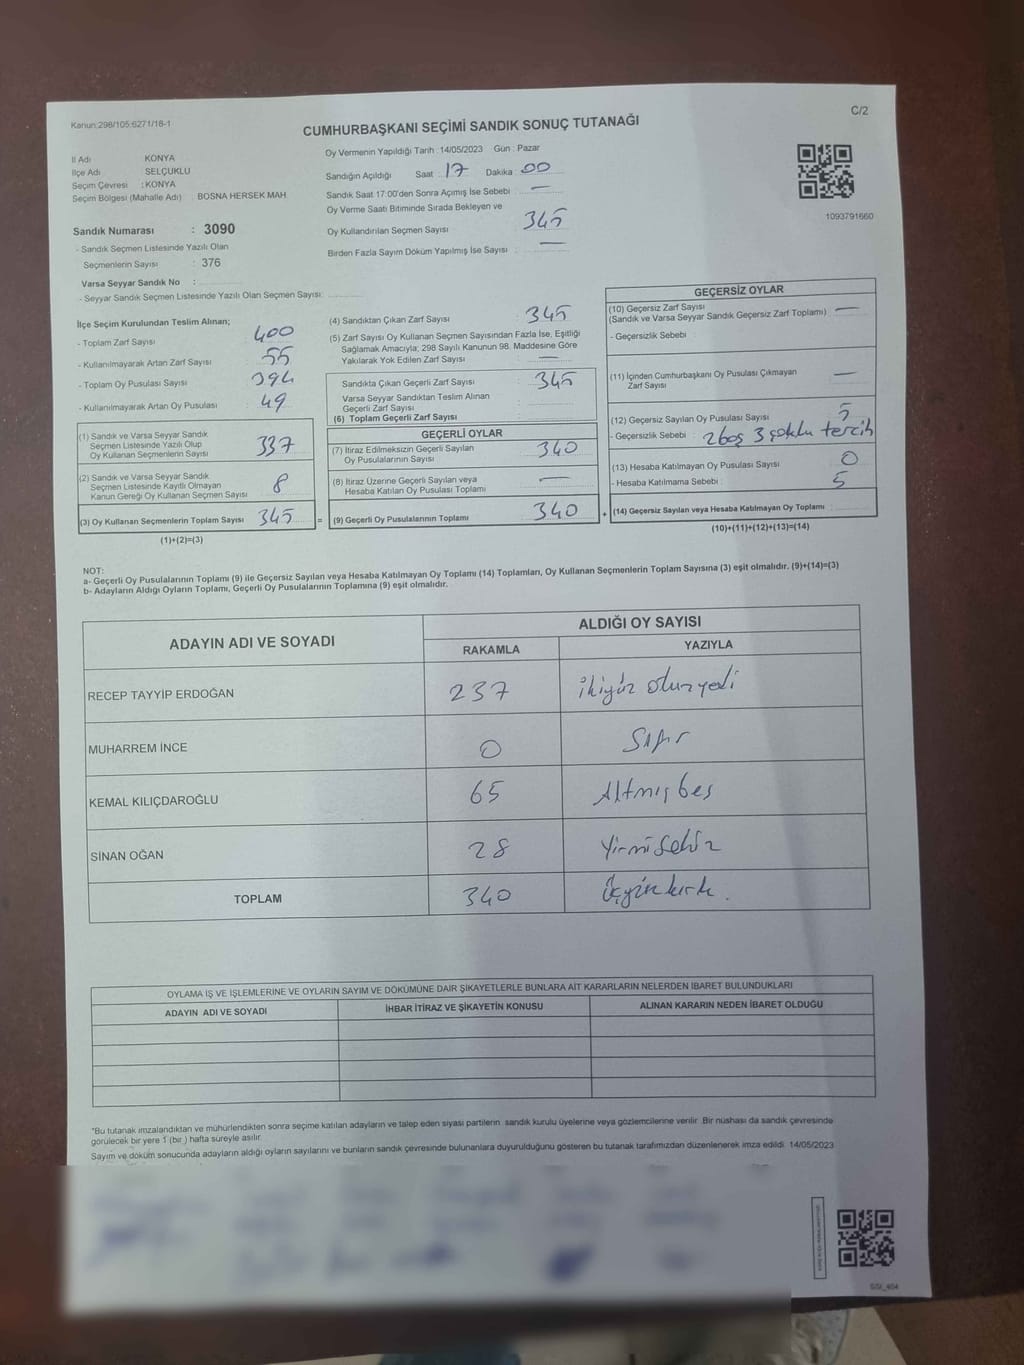 Kanun:298/105:6271/18-1
C/2
CUMHURBAŞKANI SEÇİMİ SANDIK SONUÇ TUTANAĞI
İl Adı KONYA
İlçe Adı SELÇUKLU
Seçim Çevresi : KONYA
Seçim Bölgesi (Mahalle Adı) BOSNA HERSEK MAH
Oy Vermenin Yapıldığı Tarih : 14/05/2023 Gün : Pazar
Sandığın Açıldığı Saat : 17 Dakika : 00
Sandık Saat 17:00'den Sonra Açımış İse Sebebi : —
Oy Verme Saati Bitiminde Sırada Bekleyen ve
Oy Kullandırılan Seçmen Sayısı 345
Birden Fazla Sayım Döküm Yapılmış İse Sayısı : —
1093791660
Sandık Numarası : 3090
- Sandık Seçmen Listesinde Yazılı Olan
Seçmenlerin Sayısı : 376
Varsa Seyyar Sandık No :
- Seyyar Sandık Seçmen Listesinde Yazılı Olan Seçmen Sayısı:
İlçe Seçim Kurulundan Teslim Alınan;
- Toplam Zarf Sayısı : 400
- Kullanılmayarak Artan Zarf Sayısı : 55
- Toplam Oy Pusulası Sayısı : 394
- Kullanılmayarak Artan Oy Pusulası : 49
(1) Sandık ve Varsa Seyyar Sandık
Seçmen Listesinde Yazılı Olup
Oy Kullanan Seçmenlerin Sayısı : 337
(2) Sandık ve Varsa Seyyar Sandık
Seçmen Listesinde Kayıtlı Olmayan
Kanun Gereği Oy Kullanan Seçmen Sayısı : 8
(3) Oy Kullanan Seçmenlerin Toplam Sayısı : 345 =
(1)+(2)=(3)
(4) Sandıktan Çıkan Zarf Sayısı : 345
(5) Zarf Sayısı Oy Kullanan Seçmen Sayısından Fazla İse, Eşitliği
Sağlamak Amacıyla; 298 Sayılı Kanunun 98. Maddesine Göre
Yakılarak Yok Edilen Zarf Sayısı : —
Sandıkta Çıkan Geçerli Zarf Sayısı : 345
Varsa Seyyar Sandıktan Teslim Alınan
Geçerli Zarf Sayısı :
(6) Toplam Geçerli Zarf Sayısı :
GEÇERLİ OYLAR
(7) İtiraz Edilmeksizin Geçerli Sayılan
Oy Pusulalarının Sayısı : 340
(8) İtiraz Üzerine Geçerli Sayılan veya
Hesaba Katılan Oy Pusulası Toplamı : —
(9) Geçerli Oy Pusulalarının Toplamı : 340 +
GEÇERSİZ OYLAR
(10) Geçersiz Zarf Sayısı
(Sandık ve Varsa Seyyar Sandık Geçersiz Zarf Toplamı) : —
- Geçersizlik Sebebi :
(11) İçinden Cumhurbaşkanı Oy Pusulası Çıkmayan
Zarf Sayısı : —
(12) Geçersiz Sayılan Oy Pusulası Sayısı : 5
- Geçersizlik Sebebi : 2 boş 3 çoklu tercih
(13) Hesaba Katılmayan Oy Pusulası Sayısı : 0
- Hesaba Katılmama Sebebi : 5
(14) Geçersiz Sayılan veya Hesaba Katılmayan Oy Toplamı :
(10)+(11)+(12)+(13)=(14)
NOT:
a- Geçerli Oy Pusulalarının Toplamı (9) ile Geçersiz Sayılan veya Hesaba Katılmayan Oy Toplamı (14) Toplamları, Oy Kullanan Seçmenlerin Toplam Sayısına (3) eşit olmalıdır. (9)+(14)=(3)
b- Adayların Aldığı Oyların Toplamı, Geçerli Oy Pusulalarının Toplamına (9) eşit olmalıdır.
ADAYIN ADI VE SOYADI ALDIĞI OY SAYISI
RAKAMLA YAZIYLA
RECEP TAYYİP ERDOĞAN 237 ikiyüz otuzyedi
MUHARREM İNCE 0 Sıfır
KEMAL KILIÇDAROĞLU 65 Altmışbeş
SİNAN OĞAN 28 Yirmisekiz
TOPLAM 340 Üçyüzkırk.
OYLAMA İŞ VE İŞLEMLERİNE VE OYLARIN SAYIM VE DÖKÜMÜNE DAİR ŞİKAYETLERLE BUNLARA AİT KARARLARIN NELERDEN İBARET BULUNDUKLARI
ADAYIN ADI VE SOYADI İHBAR İTİRAZ VE ŞİKAYETİN KONUSU ALINAN KARARIN NEDEN İBARET OLDUĞU
*Bu tutanak imzalandıktan ve mühürlendikten sonra seçime katılan adayların ve talep eden siyasi partilerin sandık kurulu üyelerine veya gözlemcilerine verilir. Bir nüshası da sandık çevresinde
görülecek bir yere 1 (bir) hafta süreyle asılır.
Sayım ve döküm sonucunda adayların aldığı oyların sayılarını ve bunların sandık çevresinde bulunanlara duyurulduğunu gösteren bu tutanak tarafımızdan düzenlenerek imza edildi. 14/05/2023